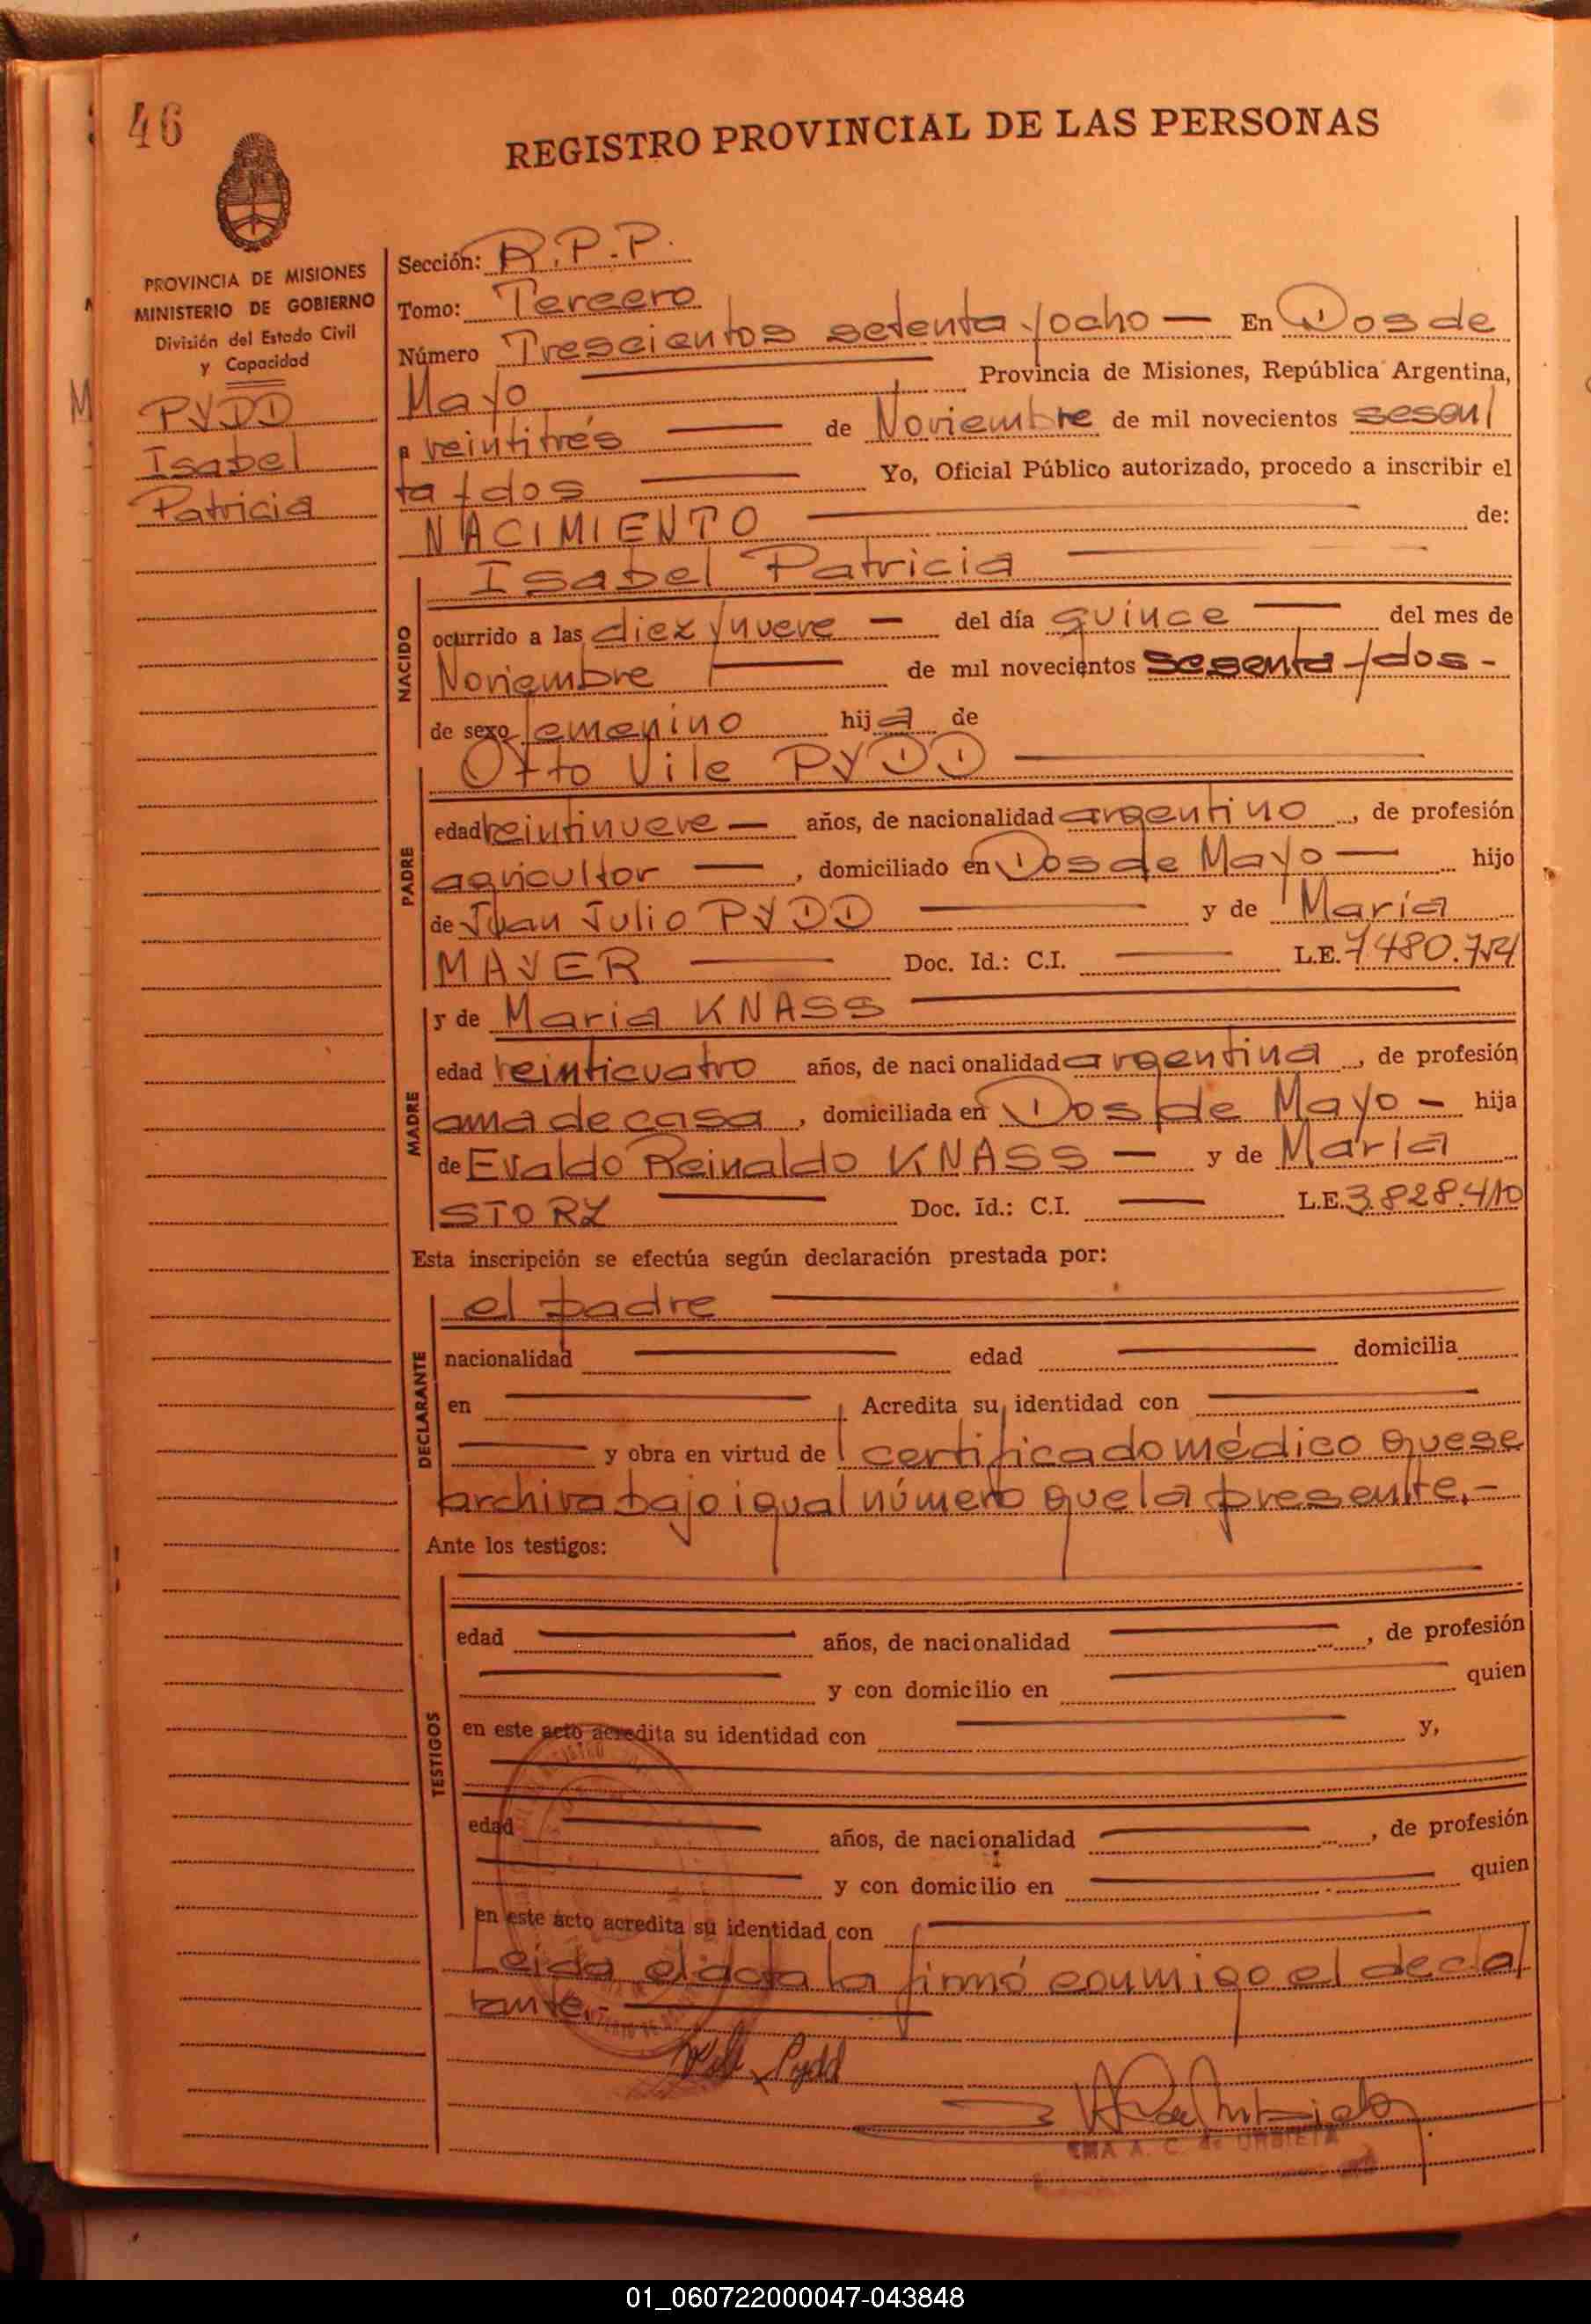 46
REGISTRO PROVINCIAL DE LAS PERSONAS
PROVINCIA DE MISIONES
MINISTERIO DE GOBIERNO
División del Estado Civil
y Capacidad
PYDD
Isabel
Patricia
Sección: R.P.P.
Tomo: Tercero
Número Trescientos setenta y ocho — En Dos de
Mayo Provincia de Misiones, República Argentina,
a veintitrés de Noviembre de mil novecientos sesen
ta y dos Yo, Oficial Público autorizado, procedo a inscribir el
NACIMIENTO de:
NACIDO
Isabel Patricia
ocurrido a las diez y nueve — del día quince del mes de
Noviembre de mil novecientos sesenta y dos -
de sexo femenino hija de
PADRE
Otto Vile PYDD
edad veintinueve — años, de nacionalidad argentino, de profesión
agricultor —, domiciliado en Dos de Mayo — hijo
de Juan Julio PYDD y de María
MAYER Doc. Id.: C.I. — L.E. 7480.754
MADRE
y de Maria KNASS
edad veinticuatro años, de nacionalidad argentina, de profesión
ama de casa, domiciliada en Dos de Mayo — hija
de Evaldo Reinaldo KNASS — y de María
STORZ Doc. Id.: C.I. — L.E. 3.828.410
Esta inscripción se efectúa según declaración prestada por:
DECLARANTE
el padre
nacionalidad — edad — domicilia
en — Acredita su identidad con —
— y obra en virtud de certificado médico que se
archiva bajo igual número que la presente.-
Ante los testigos:
TESTIGOS
edad — años, de nacionalidad —, de profesión
— y con domicilio en — quien
en este acto acredita su identidad con — y,
edad — años, de nacionalidad —, de profesión
— y con domicilio en — quien
en este acto acredita su identidad con —
Leída el acta la firmó conmigo el decla
rante.-
Pydd
A. C. de URBIETA
01_060722000047-043848